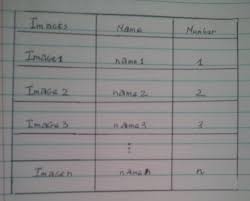 Images Name Number
Image1 name1 1
Image 2 name 2 2
Image 3 name 3 3
⋮
Imagen namen n